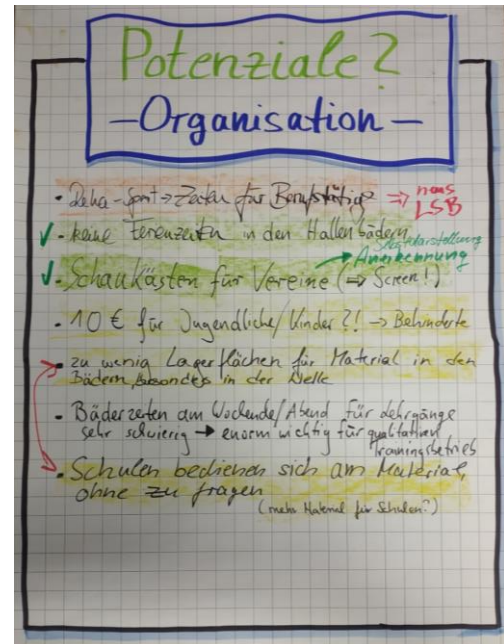 Potenziale?
– Organisation –
• Reha-Sport → Zeiten für Berufstätige ⇒ neus LSB
✓ • keine Ferienzeiten in den Hallenbädern
Selbstdarstellung
✓ • Schaukästen für Vereine (⇒ Screen!) Anerkennung
• 10 € für Jugendliche/Kinder?! → Behinderte
• zu wenig Lagerflächen für Material in den
Bädern, besonders in der Welle
• Bäderzeiten am Wochende/Abend für Lehrgänge
sehr schwierig → enorm wichtig für qualitativen
Trainingsbetrieb
• Schulen bedienen sich am Material,
ohne zu fragen
(mehr Material für Schulen?)